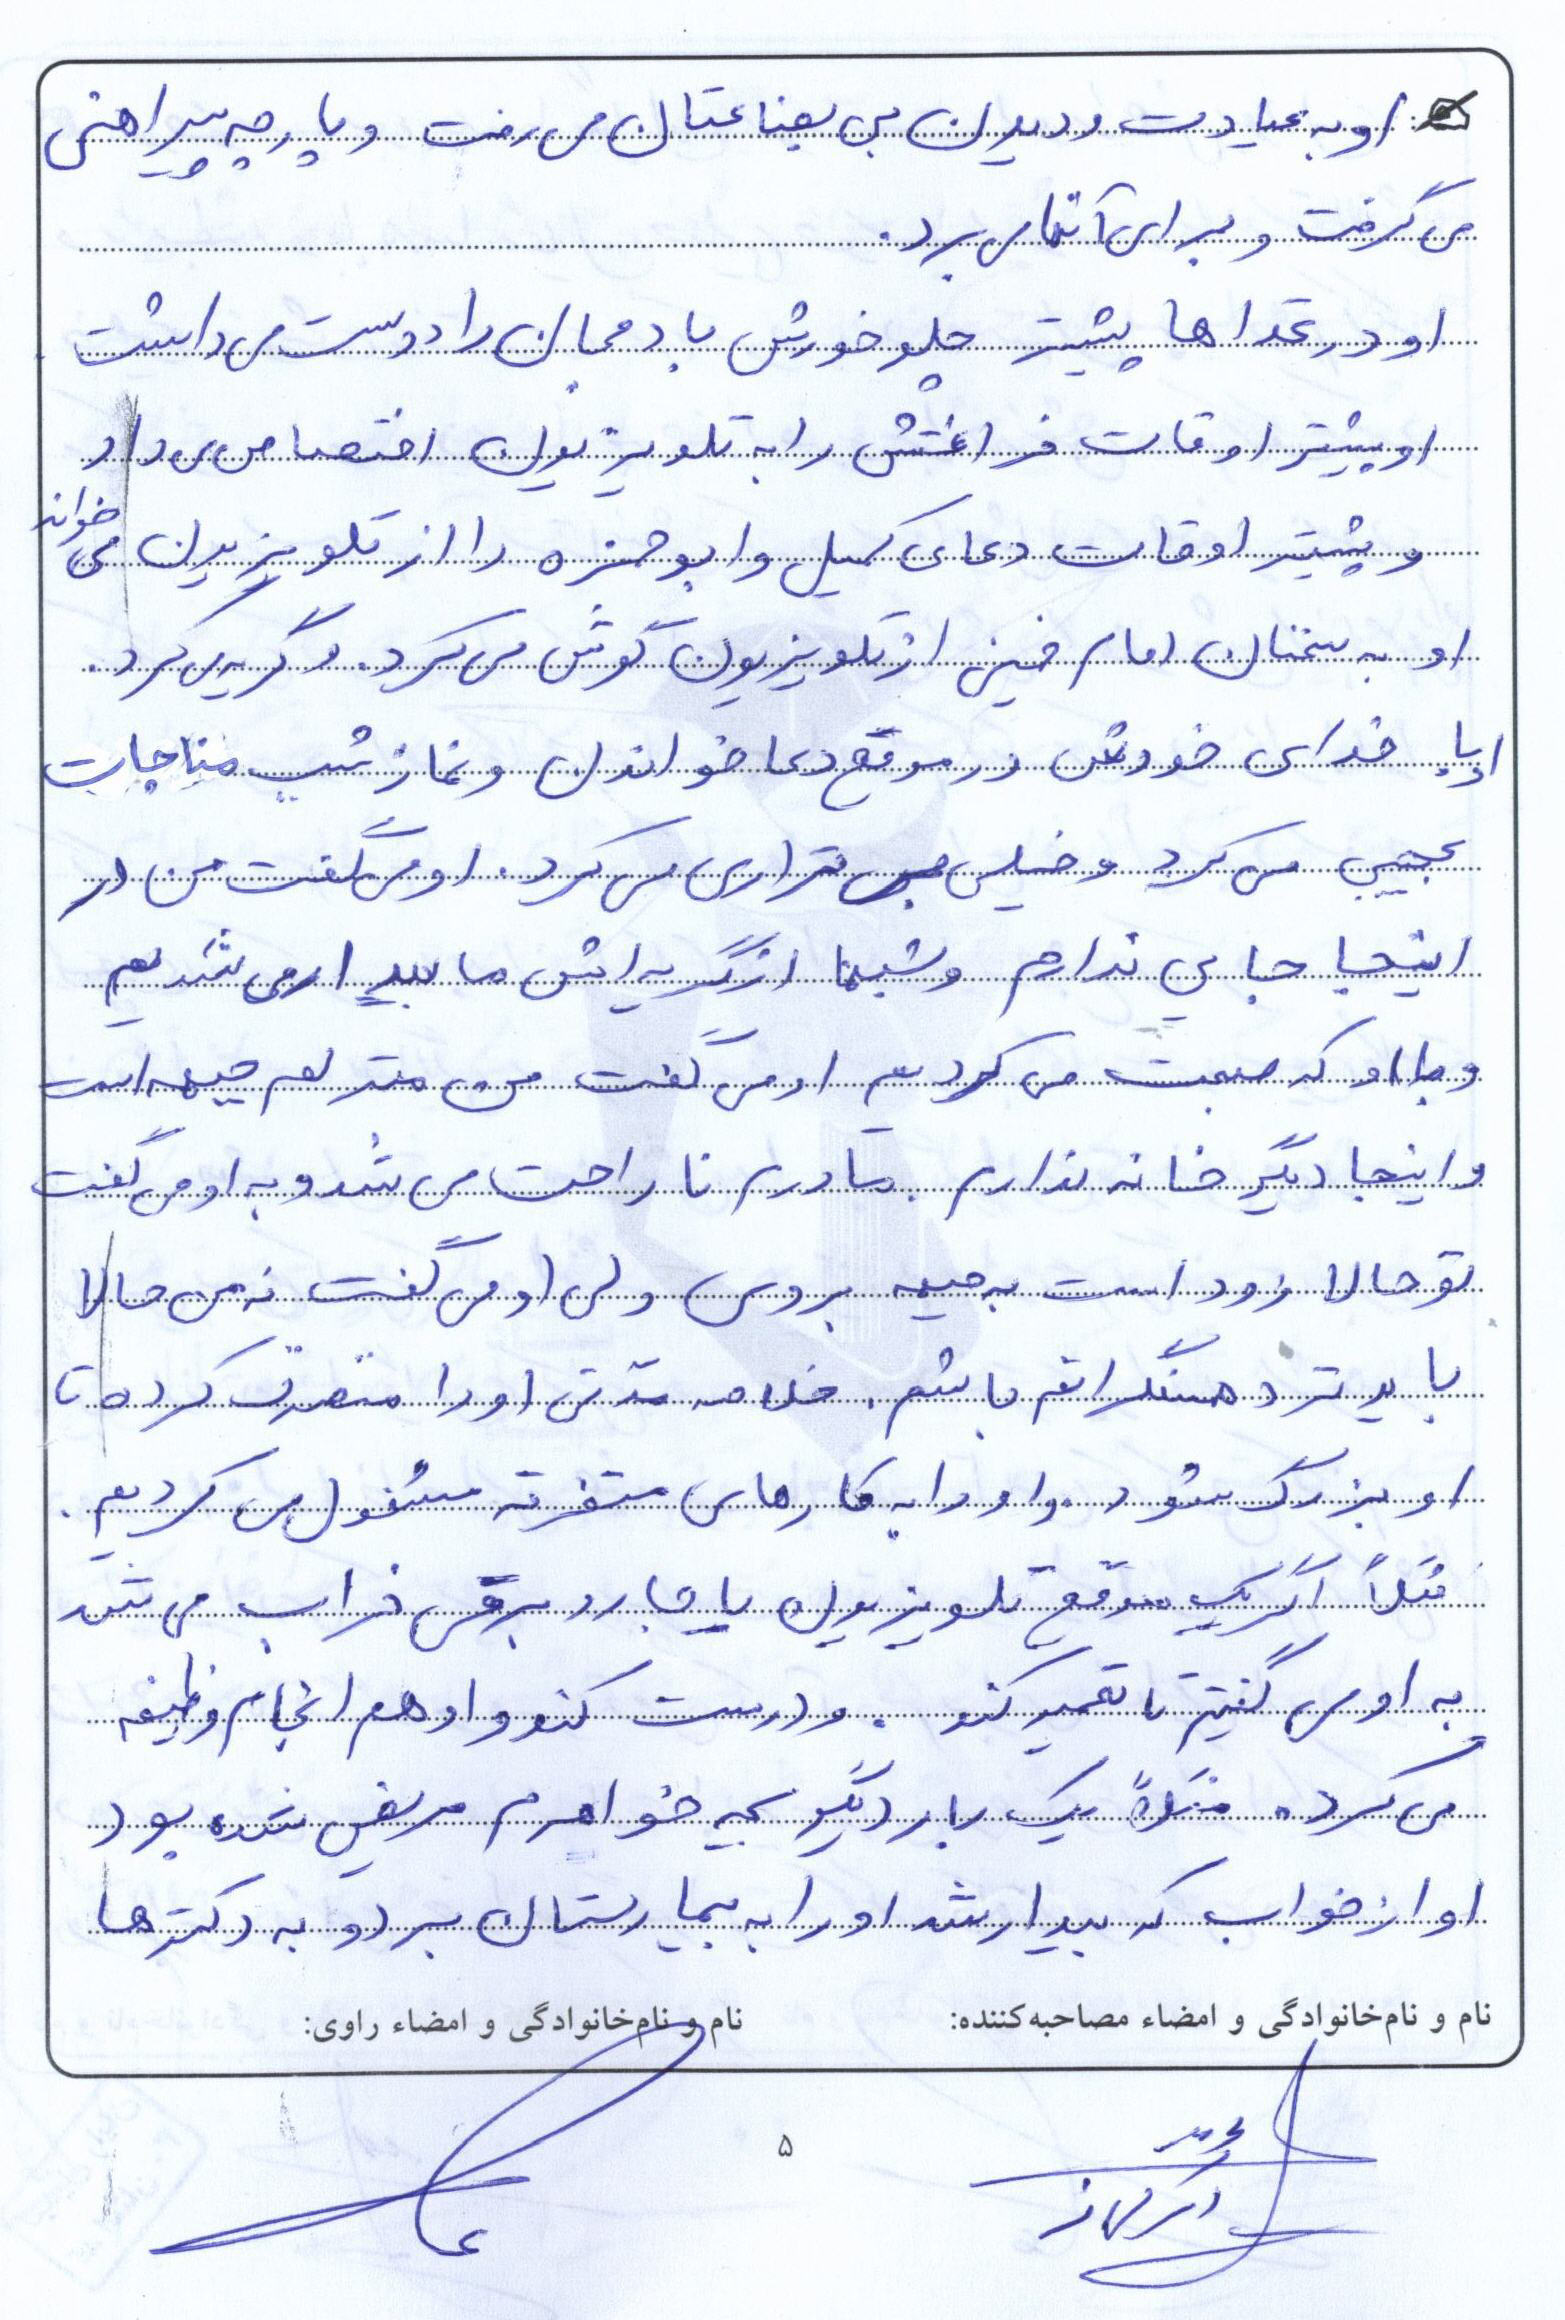 او به عیادت و دیدن بی بضاعتان می رفت و پارچه پیراهنی
می گرفت و برای آنها می برد.
او در غذاها بیشتر چلو خورش بادمجان را دوست می داشت
او بیشتر اوقات فراغتش را به تلویزیون اختصاص می داد
و بیشتر اوقات دعای کمیل و ابوحمزه را از تلویزیون می خواند
او به سخنان امام خمینی از تلویزیون گوش می کرد. و گریه می کرد.
او با خدای خودش در موقع دعا خواندن و نماز شب مناجات
عجیبی می کرد و خیلی بی قراری می کرد. او می گفت من در
اینجا جایی ندارم و شبها از گریه ایش ما بیدار می شدیم
و با او که صحبت می کردیم او می گفت من منزلم جبهه است
و اینجا دیگر خانه ندارم. مادرم ناراحت می شد و به او می گفت
تو حالا زود است به جبهه بروی ولی او می گفت نه من حالا
باید نزد همسنگرانم باشم. خلاصه مدتی او را منصرف کرده تا
او بزرگ شود. و او را به کارهای متفرقه مشغول می کردیم.
مثلاً اگر یک موقع تلویزیون یا جارو برقی خراب می شد
به او می گفتیم تا تعمیر کند. و درست کند و او هم انجام وظیفه
می کرد. مثلاً یک بار دیگر بچه خواهرم مریض شده بود
او از خواب که بیدار شد او را به بیمارستان برد و به دکترها
نام و نام‌خانوادگی و امضاء مصاحبه‌کننده:
نام و نام‌خانوادگی و امضاء راوی:
۵